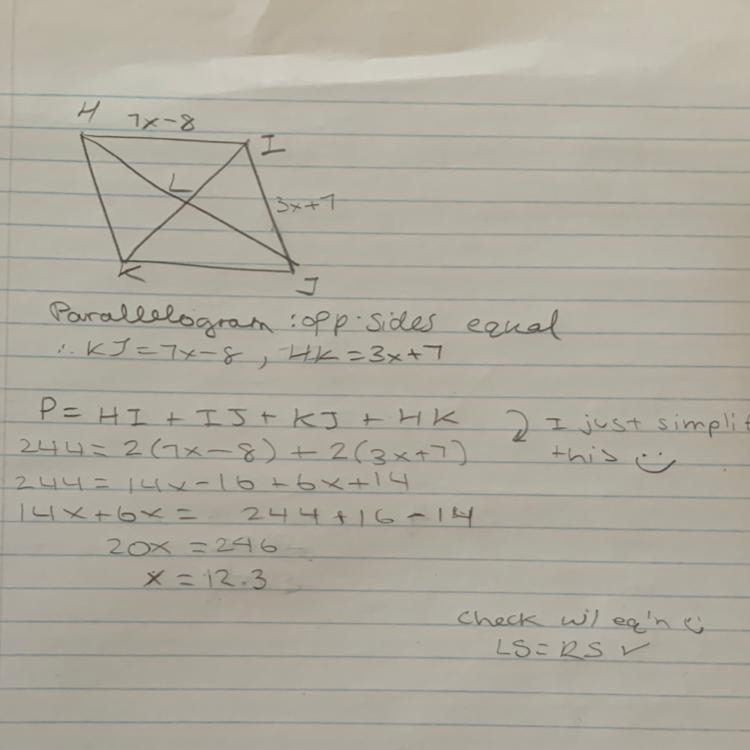 H 7x-8 I
L
3x+7
K J
Parallelogram : opp. sides equal
∴ KJ = 7x-8 , HK = 3x+7
P = HI + IJ + KJ + HK
I just simplif
this
244 = 2(7x-8) + 2(3x+7)
244 = 14x-16 + 6x+14
14x+6x = 244+16-14
20x = 246
x = 12.3
Check w/ eq'n
LS = RS ✓